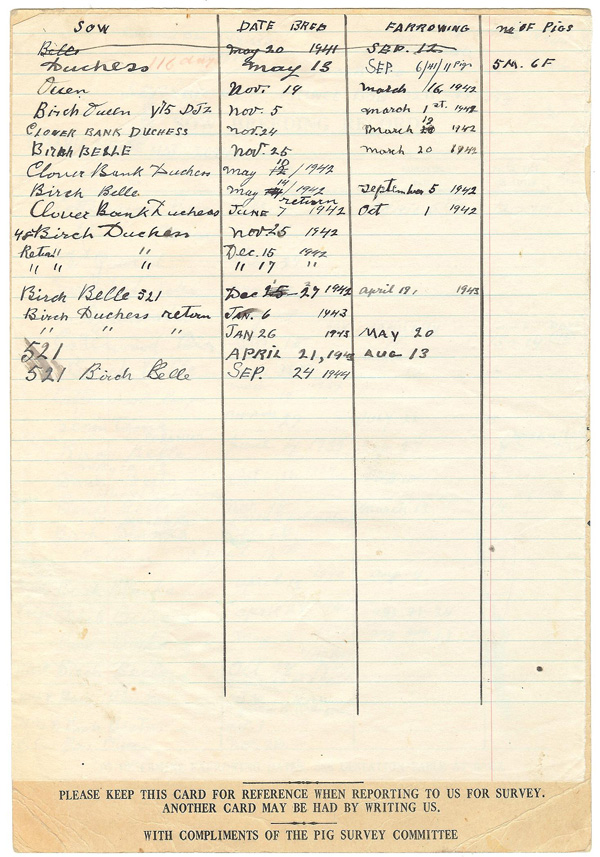 SOW DATE BRED FARROWING No OF PIGS
Belle May 20 1941 SEP. 12
116 days
Duchess May 13 SEP. 6/41/11 Pigs 5M. 6F
Queen Nov. 19 March 16, 1942
Birch Queen Y75 DJZ Nov. 5 March 1st. 1942
CLOVER BANK DUCHESS Nov. 24 March 19 1942
BIRCH BELLE Nov. 25 March 20 1942
Clover Bank Duchess May 10/1942
Birch Belle May 14/1942 September 5 1942
return
Clover Bank Duchess JUNE 7 1942 Oct 1 1942
48 Birch Duchess Nov 25 1942
Return " " Dec. 15 1942
" " " " 17 "
Birch Belle 521 Dec 25 27 1942 April 19, 1943
Birch Duchess return JAN. 6 1943
" " " JAN 26 1943 MAY 20
521 APRIL 21, 1943 AUG 13
521 Birch Belle SEP. 24 1944
PLEASE KEEP THIS CARD FOR REFERENCE WHEN REPORTING TO US FOR SURVEY.
ANOTHER CARD MAY BE HAD BY WRITING US.
WITH COMPLIMENTS OF THE PIG SURVEY COMMITTEE